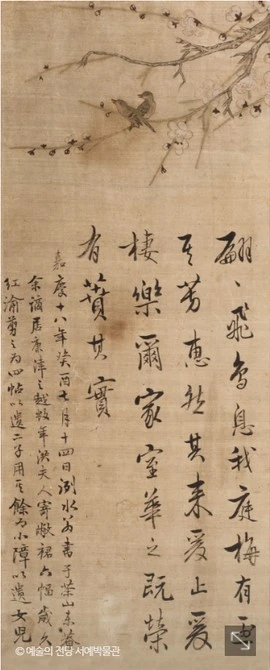 翩〻飛鳥息我庭梅有烈
其芳惠然其來爰止爰
棲樂爾家室華之既榮
有蕡其實
嘉慶十八年癸酉七月十四日洌水翁書于茶山東菴
余謫居康津之越數年洪夫人寄敝裙六幅歲久
紅渝剪之为四帖以遺二子用其餘为小障以遺女兒
© 예술의 전당 서예박물관